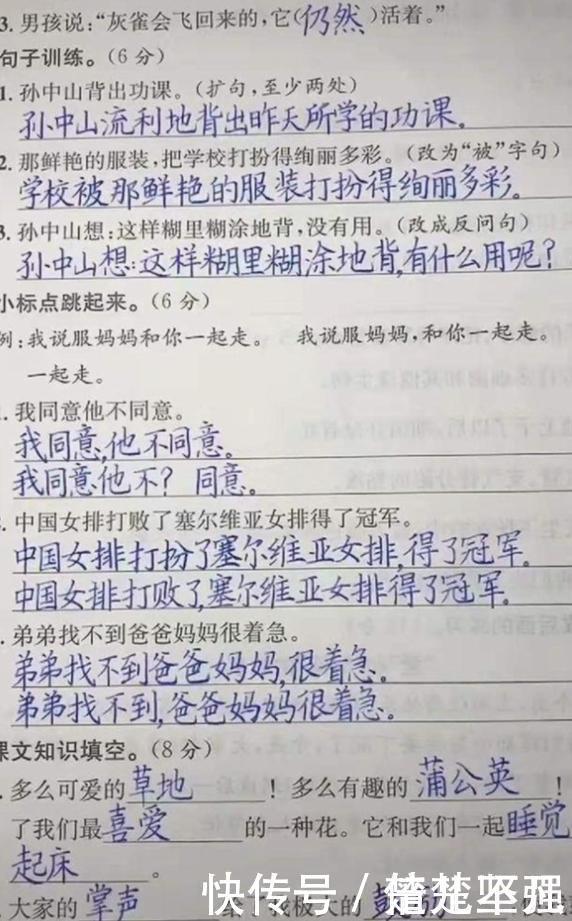 3. 男孩说：“灰雀会飞回来的，它（仍然）活着。”
句子训练。（6 分）
1. 孙中山背出功课。（扩句，至少两处）
孙中山流利地背出昨天所学的功课。
2. 那鲜艳的服装，把学校打扮得绚丽多彩。（改为“被”字句）
学校被那鲜艳的服装打扮得绚丽多彩。
3. 孙中山想：这样糊里糊涂地背，没有用。（改成反问句）
孙中山想：这样糊里糊涂地背，有什么用呢？
小标点跳起来。（6 分）
例：我说服妈妈和你一起走。 我说服妈妈，和你一起走。
一起走。
. 我同意他不同意。
我同意，他不同意。
我同意他不？同意。
. 中国女排打败了塞尔维亚女排得了冠军。
中国女排打扮了塞尔维亚女排，得了冠军。
中国女排打败了，塞尔维亚女排得了冠军。
. 弟弟找不到爸爸妈妈很着急。
弟弟找不到爸爸妈妈，很着急。
弟弟找不到，爸爸妈妈很着急。
课文知识填空。（8 分）
. 多么可爱的草地！多么有趣的蒲公英！
了我们最喜爱的一种花。它和我们一起睡觉
起床。
. 大家的掌声
快传号／